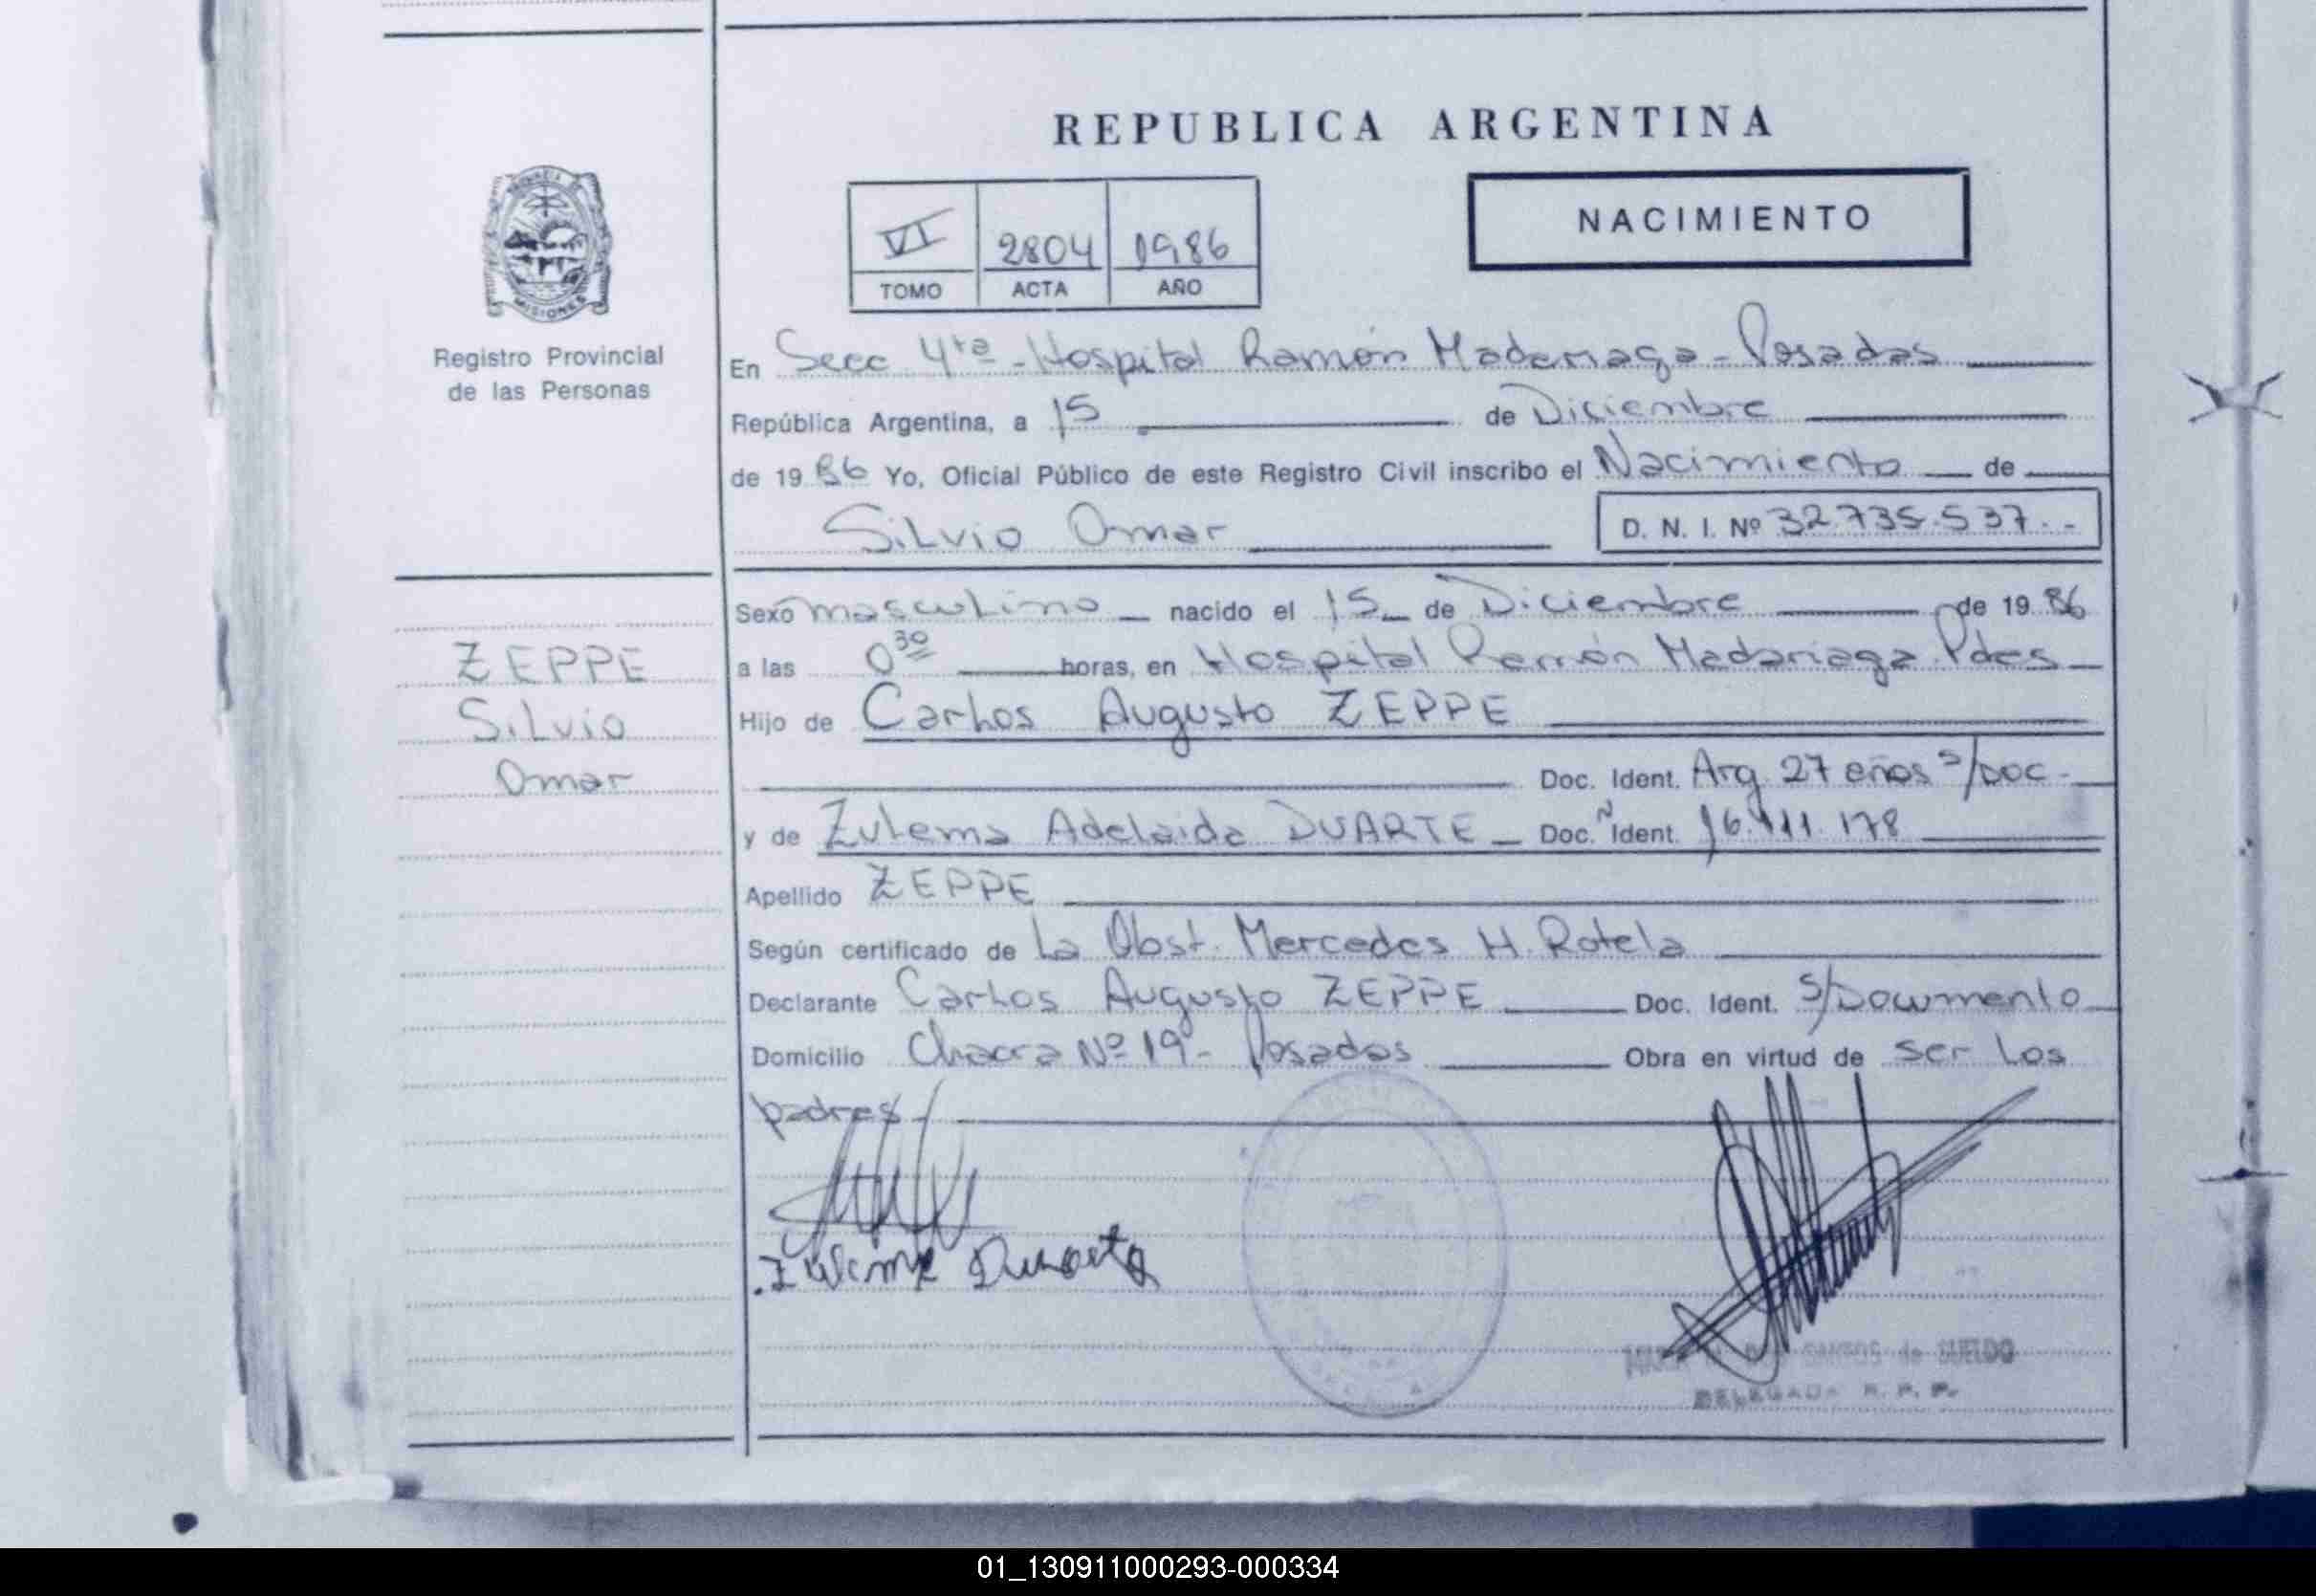 REPUBLICA ARGENTINA
NACIMIENTO
VI 2804 1986
TOMO ACTA AÑO
PROVINCIA DE
MISIONES
Registro Provincial
de las Personas
En Secc 4ta - Hospital Ramón Madariaga - Posadas
República Argentina, a 15 de Diciembre
de 19 86 Yo, Oficial Público de este Registro Civil inscribo el Nacimiento de
Silvio Omar D. N. I. Nº 32.735.537.-
Sexo masculino nacido el 15 de Diciembre de 19 86
a las 0 30 horas, en Hospital Ramón Madariaga Pdas
Hijo de Carlos Augusto ZEPPE
Doc. Ident. Arg. 27 años s/Doc.
y de Zulema Adelaida DUARTE Doc. Ident. Nº 16.111.178
Apellido ZEPPE
Según certificado de La Obst. Mercedes H. Rotela
Declarante Carlos Augusto ZEPPE Doc. Ident. s/Documento
Domicilio Chacra Nº 19 - Posadas Obra en virtud de ser los
padres
ZEPPE
Silvio
Omar
Zulema Duarte
SANTOS de SUELDO
DELEGADA R. P. P.
01_130911000293-000334